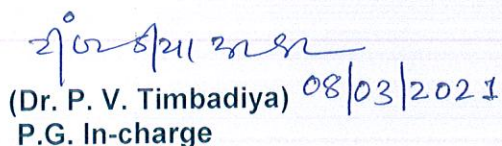 (Dr. P. V. Timbadiya) 08/03/2021
P.G. In-charge